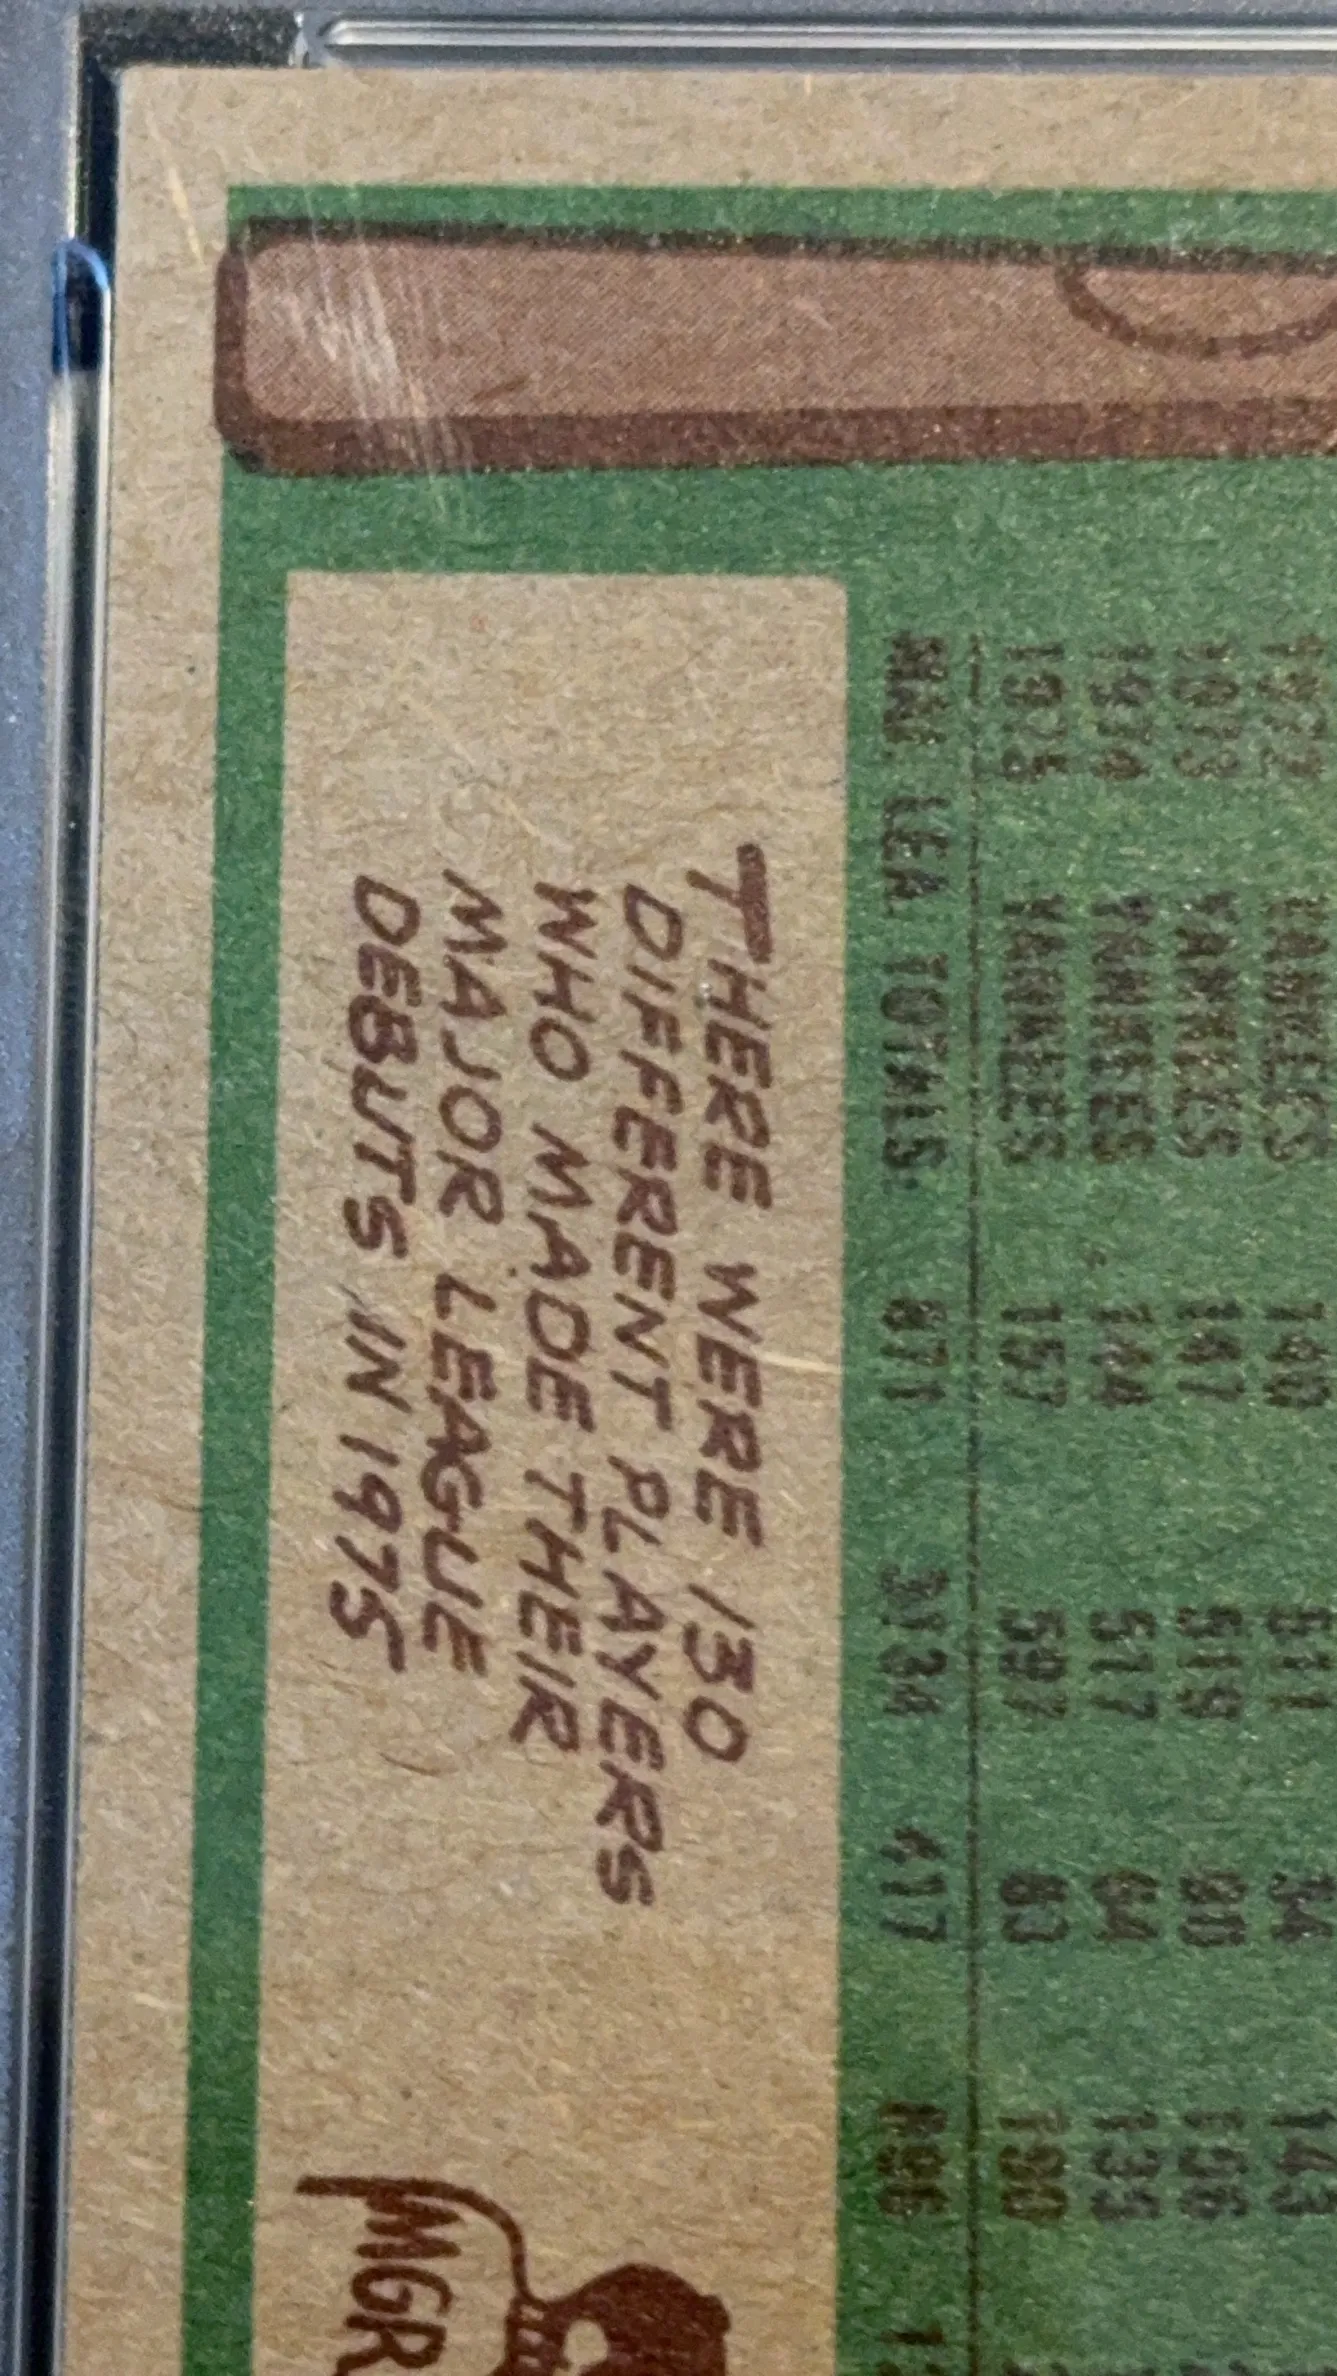 1972 YANKEES 140 511 54 143
1973 YANKEES 147 519 80 156
1974 YANKEES 144 517 64 135
1975 YANKEES 157 597 83 190
MAJ. LEA. TOTALS 871 3134 417 896
THERE WERE 130
DIFFERENT PLAYERS
WHO MADE THEIR
MAJOR LEAGUE
DEBUTS IN 1975
MGR